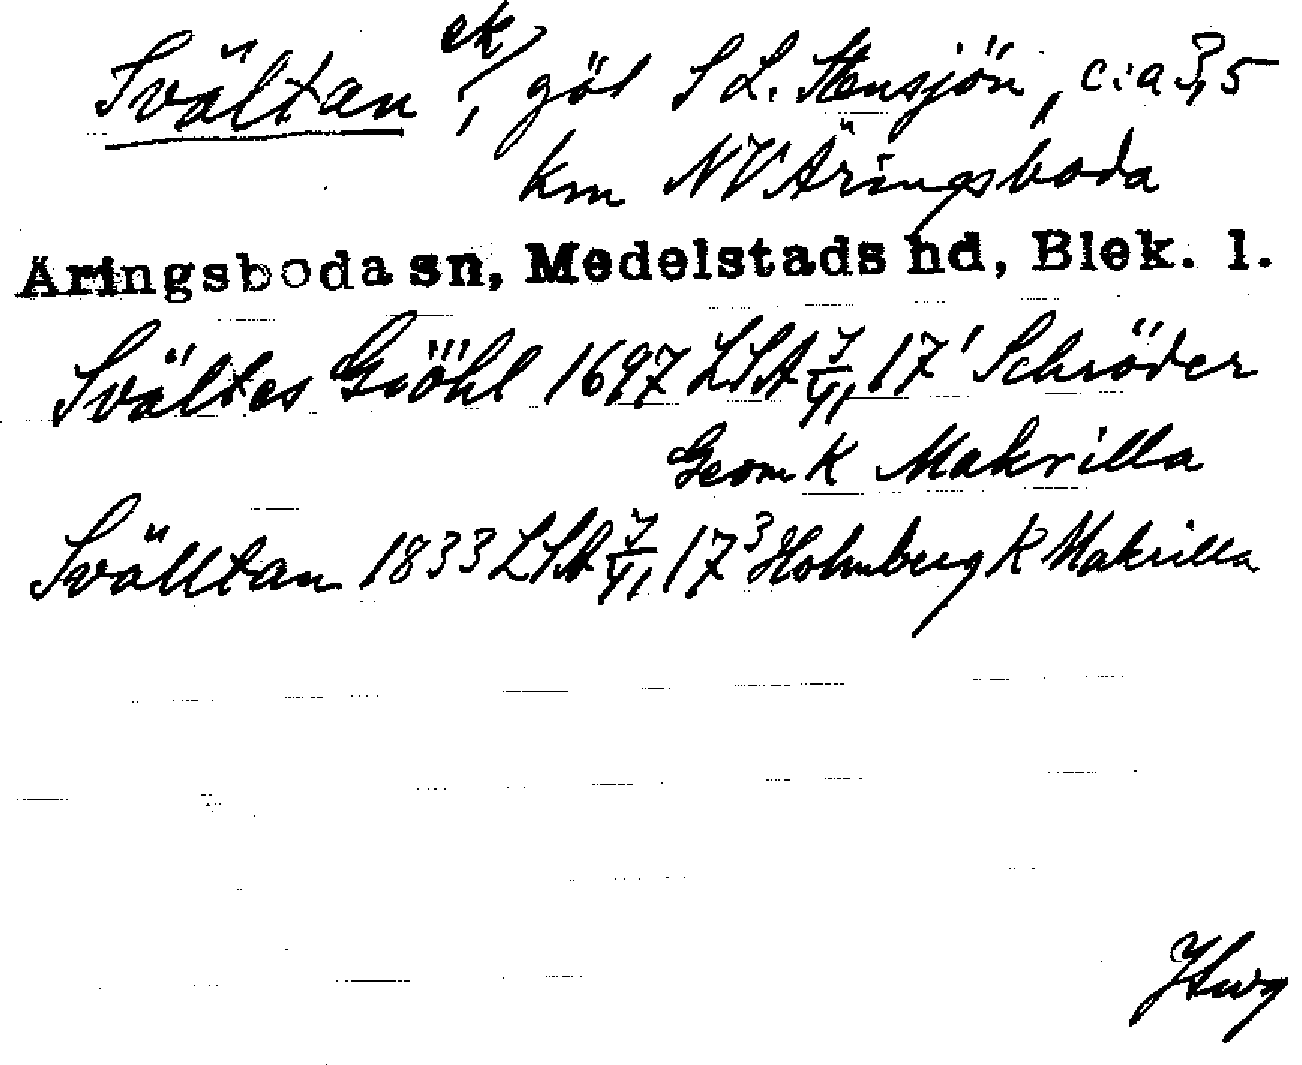 Svältan ek/, göl S L. Stensjön, c:a 3,5
km NV Äringsboda
Äringsboda sn, Medelstads hd, Blek. l.
Svältes Giöhl 1697 LSA 7/VI, 17' Schröder
Geom K Makrilla
Svälltan 1833 LSA 7/VI, 17³ Holmberg K Makrilla